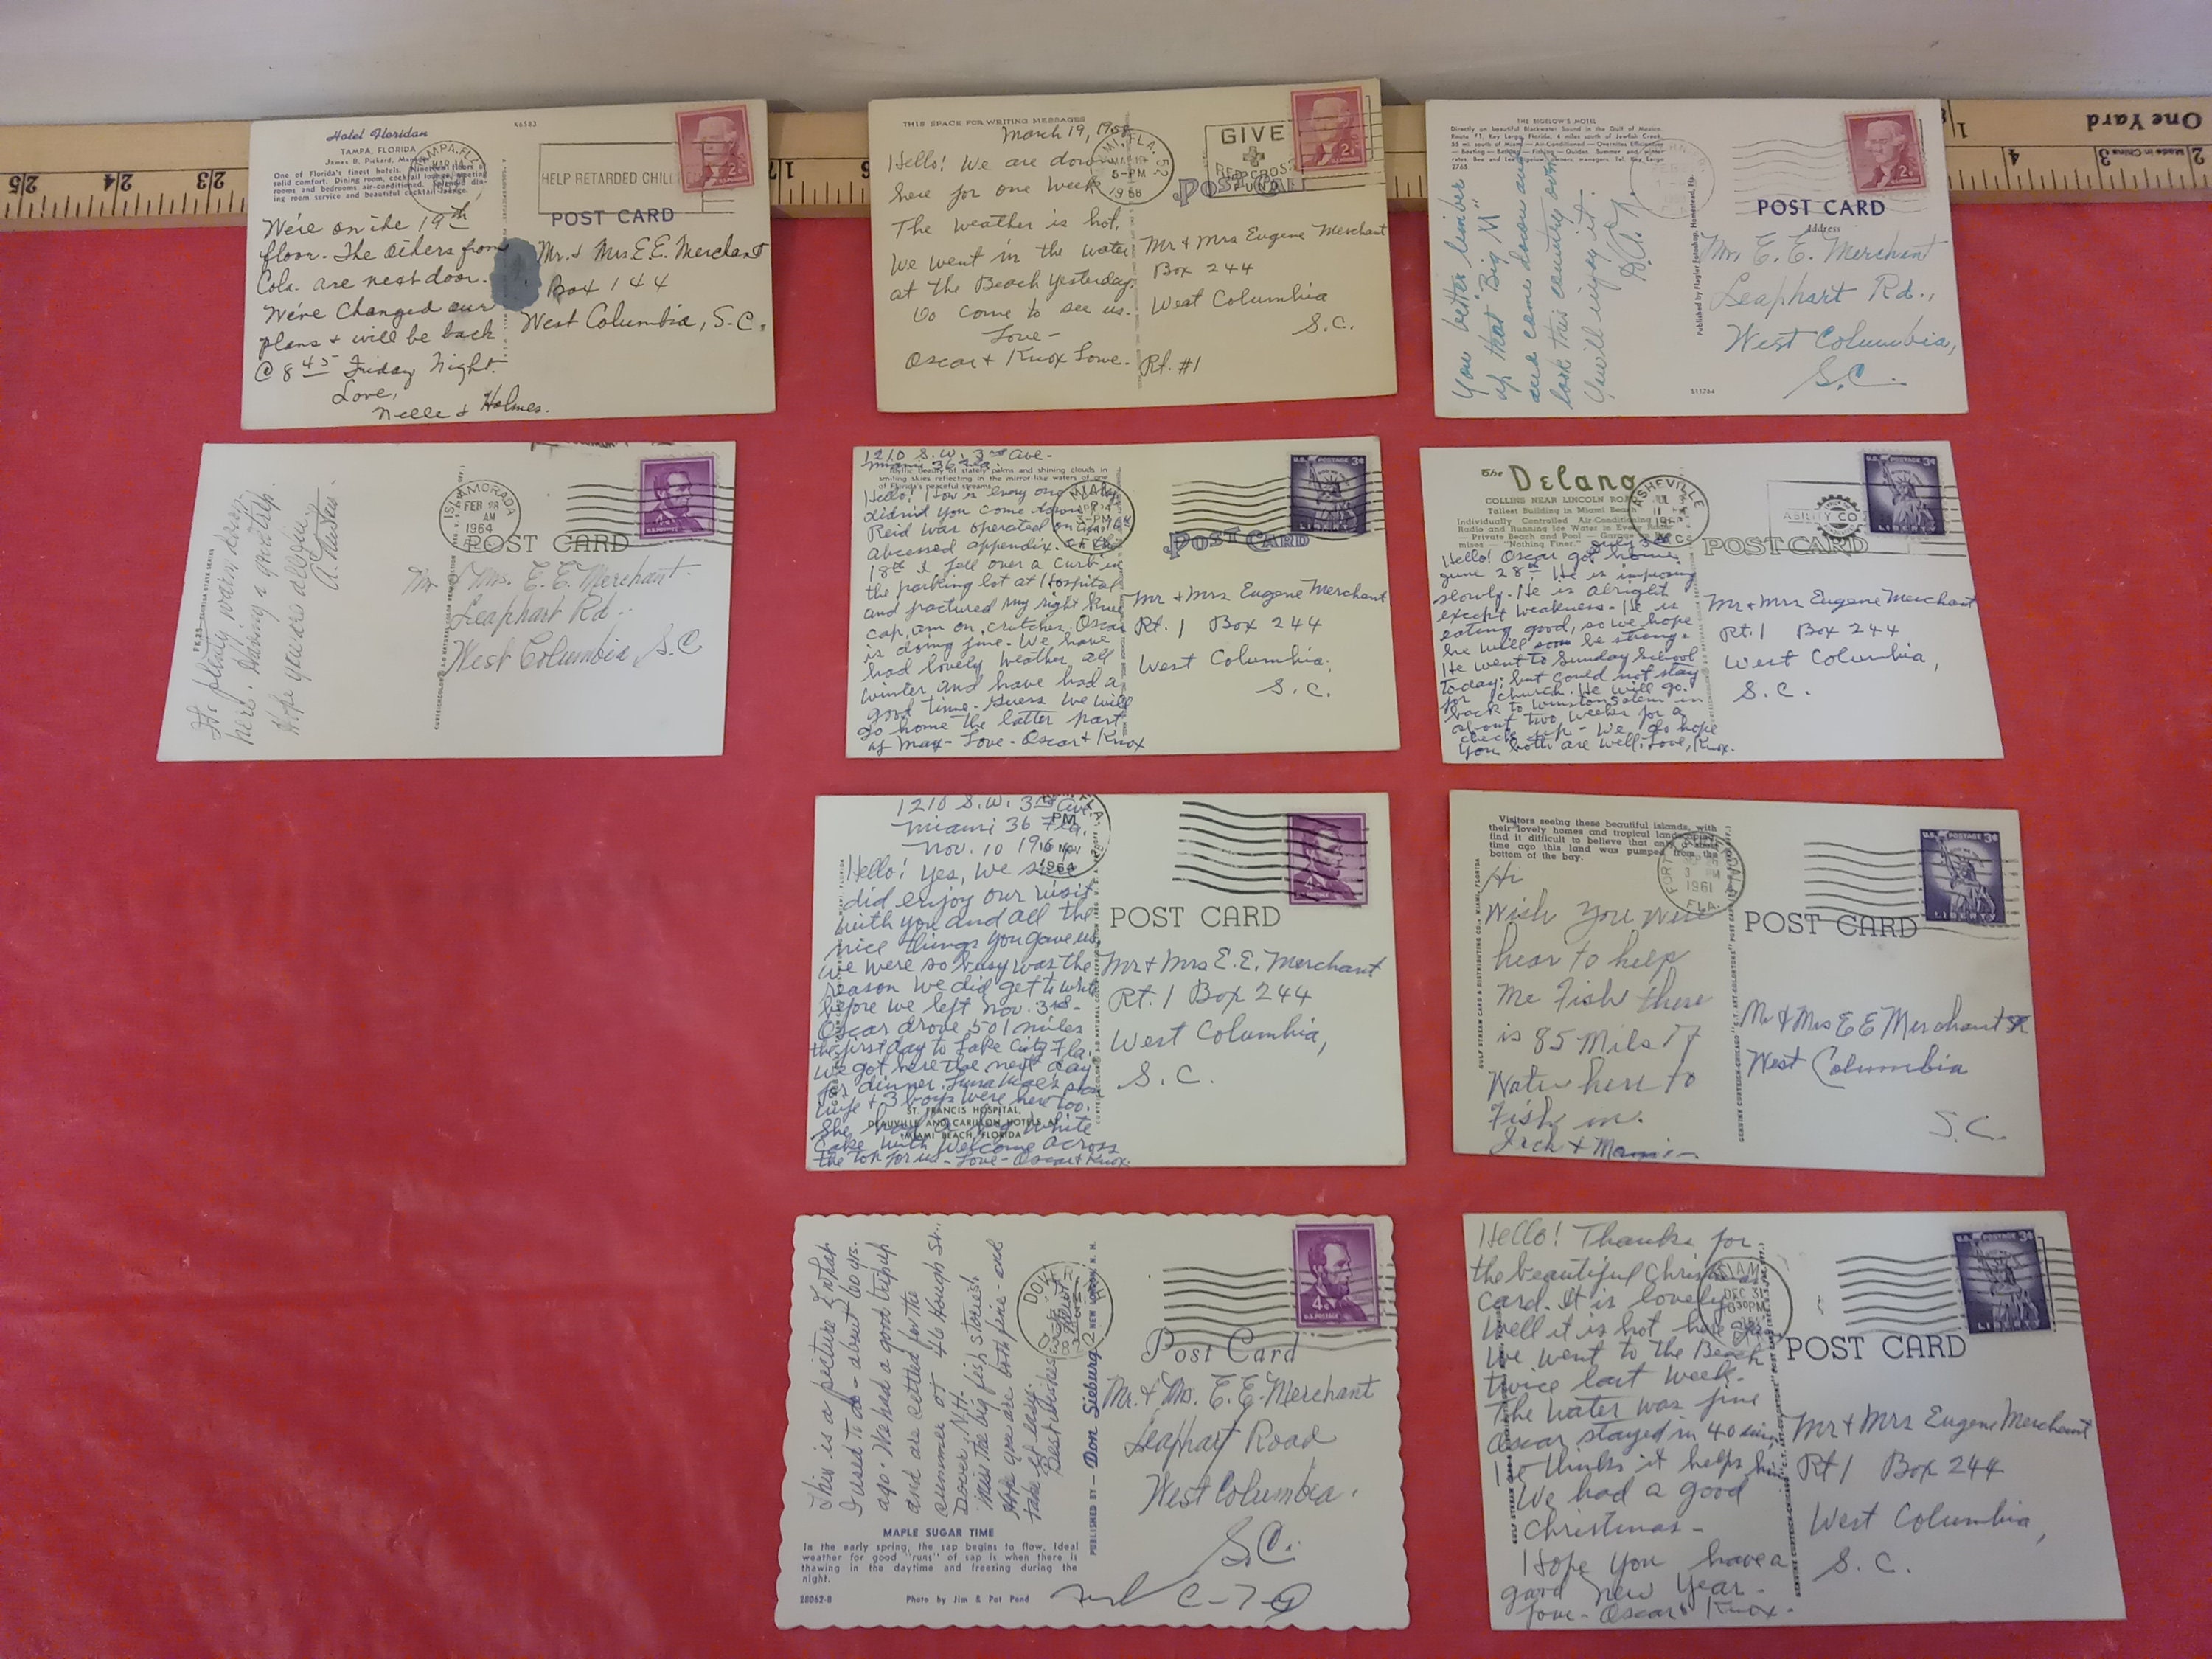 25
24
23
One Yard
Made in China
2
3
4
Hotel Floridan
TAMPA, FLORIDA
James B. Pickard, Manager
One of Florida's finest hotels. Nineteen floors of
solid comfort. Dining room, cocktail lounge, meeting
rooms and bedrooms air-conditioned. Splendid din-
ing room service and beautiful cocktail lounge.
K6583
TAMPA, FLA.
MAR 14
HELP RETARDED CHILDREN
2¢
POST CARD
We're on the 19th
floor. The others from
Cola. are next door.
We've changed our
plans & will be back
@ 8 45 Friday Night.
Love,
Nelle & Holmes.
Mr. & Mrs. E.E. Merchant
Box 144
West Columbia, S.C.
THIS SPACE FOR WRITING MESSAGES
March 19, 1958
Hello! We are down
here for one week
The weather is hot.
We went in the water
at the Beach yesterday.
Do come to see us.
Love -
Oscar & Knox Lowe.
MIAMI, FLA. 52
5-PM
1958
GIVE
RED CROSS
FUND
2¢
POST CARD
Mr & Mrs Eugene Merchant
Box 244
West Columbia
S.C.
Rt. #1
THE BIGELOW'S MOTEL
Directly on beautiful Blackwater Sound in the Gulf of Mexico.
Route #1, Key Largo, Florida, 4 miles south of Jewfish Creek,
55 mi. south of Miami — Air-Conditioned — Overnites Efficiencies
— Boating — Bathing — Fishing — Golden Summer and winter
rates. Bee and Lee Bigelow, Owners, managers. Tel. Key Largo
2765
You better limber
up that "Big M"
and come down and
look this country over
You will enjoy it.
Published by Flagler Fotoshop, Homestead, Fla.
S11764
2¢
POST CARD
Address
Mr. E. E. Merchant
Leaphart Rd.,
West Columbia,
S.C.
It's plenty warm down
here. Having a good trip.
Hope you are all fine.
ISLAMORADA
FEB 28
AM
1964
POST CARD
Mr Mrs. E. E. Merchant.
Leaphart Rd.
West Columbia S.C
1210 S.W. 3rd Ave-
Miami 36 Fla.
Idyllic beauty of stately palms and shining clouds in
smiling skies reflecting in the mirror-like waters of one
of Florida's peaceful streams.
Hello! How is every one
didn't you come down?
Reid was operated on
abcessed appendix. on the
18th I fell over a curb in
the parking lot at Hospital
and fractured my right knee
cap, am on crutches. Oscar
is doing fine. We have
had lovely weather all
winter and have had a
good time. Guess we will
go home the latter part
of May- Love - Oscar & Knox
MIAMI
5-PM
U.S. POSTAGE 3¢
LIBERTY
POST CARD
Mr & Mrs Eugene Merchant
Rt. 1 Box 244
West Columbia,
S.C.
The Delano
COLLINS NEAR LINCOLN ROAD
Tallest Building in Miami Beach
Individually Controlled Air-Conditioning
Radio and Running Ice Water in Every Room
— Private Beach and Pool — Garage on
mises — "Nothing Finer."
ASHEVILLE
N.C.
ABILITY CO
U.S. POSTAGE 3¢
LIBERTY
POST CARD
Hello! Oscar got home
June 28th. He is improving
slowly. He is alright
except weakness. He is
eating good, so we hope
he will soon be strong.
He went to Sunday School
today; but could not stay
for church. He will go
back to Winston Salem in
about two weeks for a
check up - We do hope
you both are well. Love, Knox.
Mr & Mrs Eugene Merchant
Rt. 1 Box 244
West Columbia,
S.C.
1210 S.W. 3rd Ave.
Miami 36 Fla.
Nov. 10 19
PM
NOV
1964
Hello! Yes, we sure
did enjoy our visit
with you and all the
nice things you gave us.
we were so busy was the
reason we did get to write
before we left Nov. 3rd-
Oscar drove 501 miles
the first day to Lake City Fla.
we got here the next day
for dinner.
wife & 3 boys were here too.
She had a big white
cake with Welcome across
the top for us - Love - Oscar & Knox.
ST. FRANCIS HOSPITAL,
DEAUVILLE AND CARILLON HOTELS AT
MIAMI BEACH, FLORIDA
POST CARD
Mr & Mrs E.E. Merchant
Rt. 1 Box 244
West Columbia,
S.C.
Visitors seeing these beautiful islands, with
their lovely homes and tropical landscaping
find it difficult to believe that only a short
time ago this land was pumped from the
bottom of the bay.
FLA.
3 PM
1961
U.S. POSTAGE 3¢
LIBERTY
POST CARD
Hi
Wish you were
hear to help
me Fish there
is 85 Mils of
Water here to
Fish in.
Mr & Mrs E E Merchant
West Columbia
S.C.
GULF STREAM CARD & DISTRIBUTING CO., MIAMI, FLORIDA
This is a picture of what
I used to do - about 60 yrs.
ago. We had a good trip up
and are settled for the
summer at 46 Hough St.
Dover, N.H.
Miss the big fish stories!
Hope you are both fine - and
take it easy.
Best wishes
MAPLE SUGAR TIME
In the early spring, the sap begins to flow. Ideal
weather for good "runs" of sap is when there is
thawing in the daytime and freezing during the
night.
28062-B
Photo by Jim & Pat Pond
PUBLISHED BY — Don Sieburg NEW LONDON, N. H.
4¢
U.S. POSTAGE
Post Card
Mr. & Mrs. E. E. Merchant
Leaphart Road
West Columbia.
S.C.
Hello! Thanks for
the beautiful Christmas
card. It is lovely
Well it is hot here
We went to the Beach
twice last week.
The water was fine
Oscar stayed in 40 min,
He thinks it helps him
We had a good
Christmas -
Hope you have a
good New Year.
Love - Oscar & Knox.
MIAMI
DEC 31
830PM
U.S. POSTAGE 3¢
LIBERTY
POST CARD
Mr & Mrs Eugene Merchant
Rt 1 Box 244
West Columbia,
S.C.